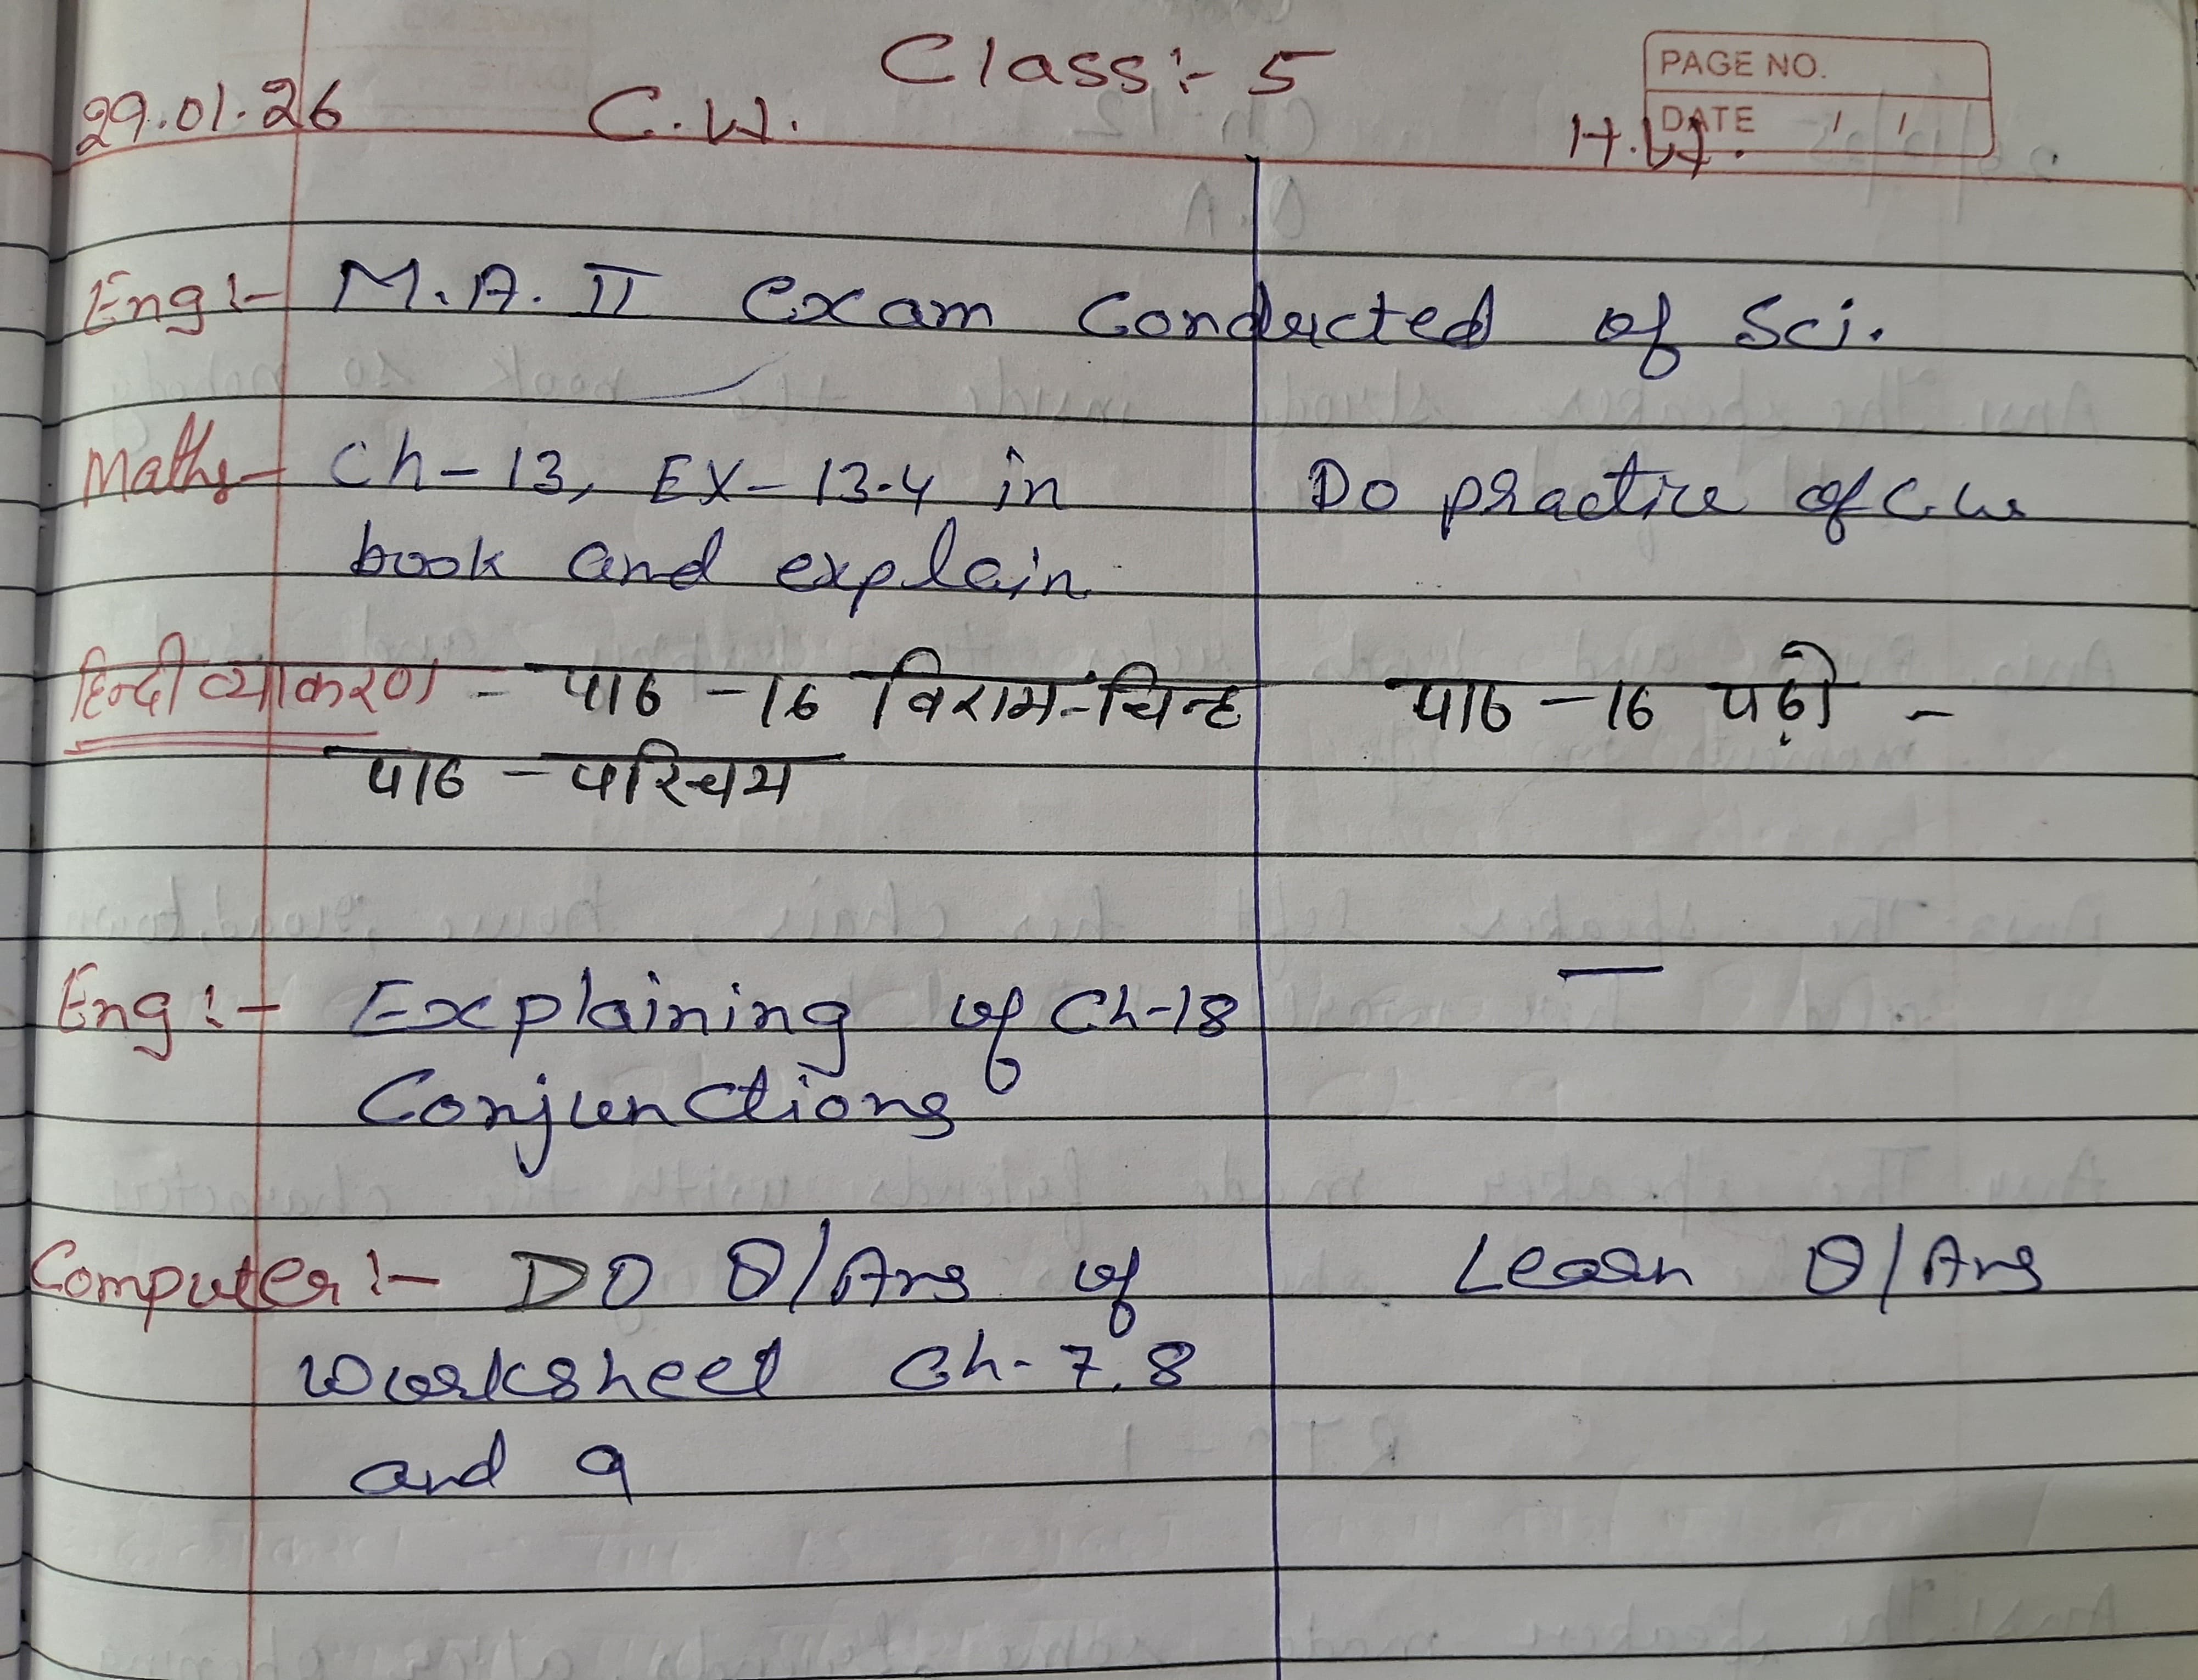 Class:- 5
PAGE NO.
DATE / /
29.01.26 C.W. H.W.
Eng:- M.A. II Exam Conducted of Sci.
Maths- Ch-13, EX-13.4 in Do practice of C.W
book and explain
हिन्दी व्याकरण - पाठ -16 विराम-चिन्ह पाठ -16 पढ़ो -
पाठ - परिचय
Eng:- Explaining of Ch-18 —
Conjunctions
Computer:- DO Q/Ans of Learn Q/Ans
Worksheet Ch-7,8
and 9